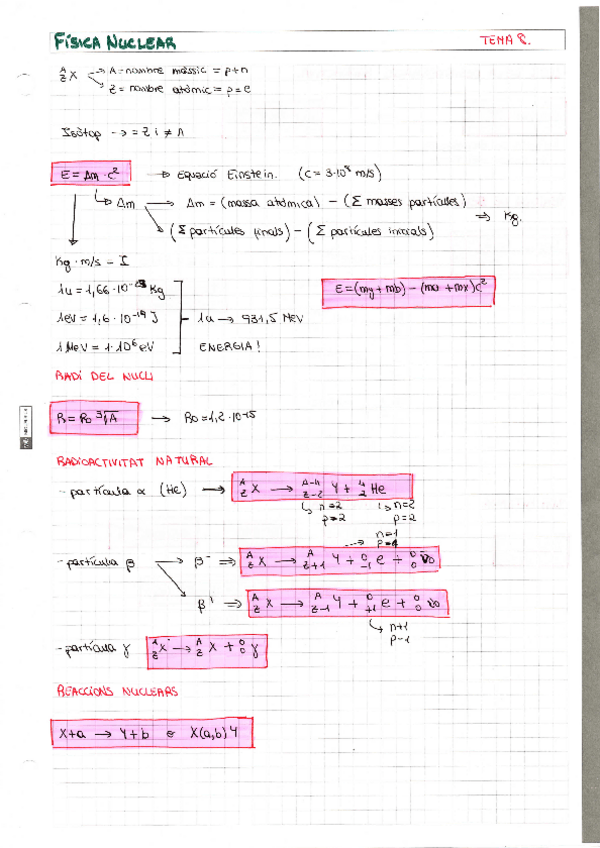 FÍSICA NUCLEAR TEMA 8.
ᴬ_Z X → A = nombre màssic = p+n
→ Z = nombre atòmic = p = e
Isòtop → = Z i ≠ A
E = Δm · c² → Equació Einstein. (c = 3·10⁸ m/s)
Δm → Δm = (massa atòmica) − (Σ masses partícules) ⇒ Kg.
(Σ partícules finals) − (Σ partícules inicials)
Kg · m/s − I
1u = 1,66·10⁻ Kg
1eV = 1,6·10⁻¹⁹ J 1u → 931,5 MeV
1 MeV = 1·10⁶ eV ENERGIA!
E = (my + mb) − (ma + mx)c²
RADI DEL NUCLI
R = R0 ³√A → R0 = 1,2·10⁻¹⁵
RADIOACTIVITAT NATURAL
- partícula α (He) → ᴬ_Z X → ᴬ⁻⁴_Z₋₂ Y + ⁴₂ He
n=2 n=2
p=2 p=2
n=1
- partícula β → β⁻ ⇒ ᴬ_Z X → ᴬ_Z₊₁ Y + ⁰₋₁ e + ⁰₀ ν̄0
β⁺ ⇒ ᴬ_Z X → ᴬ_Z₋₁ Y + ⁰₊₁ e + ⁰₀ ν0
n+1
p-1
- partícula γ ᴬ_Z X → ᴬ_Z X + ⁰₀ γ
REACCIONS NUCLEARS
X+a → Y+b o X(a,b)Y